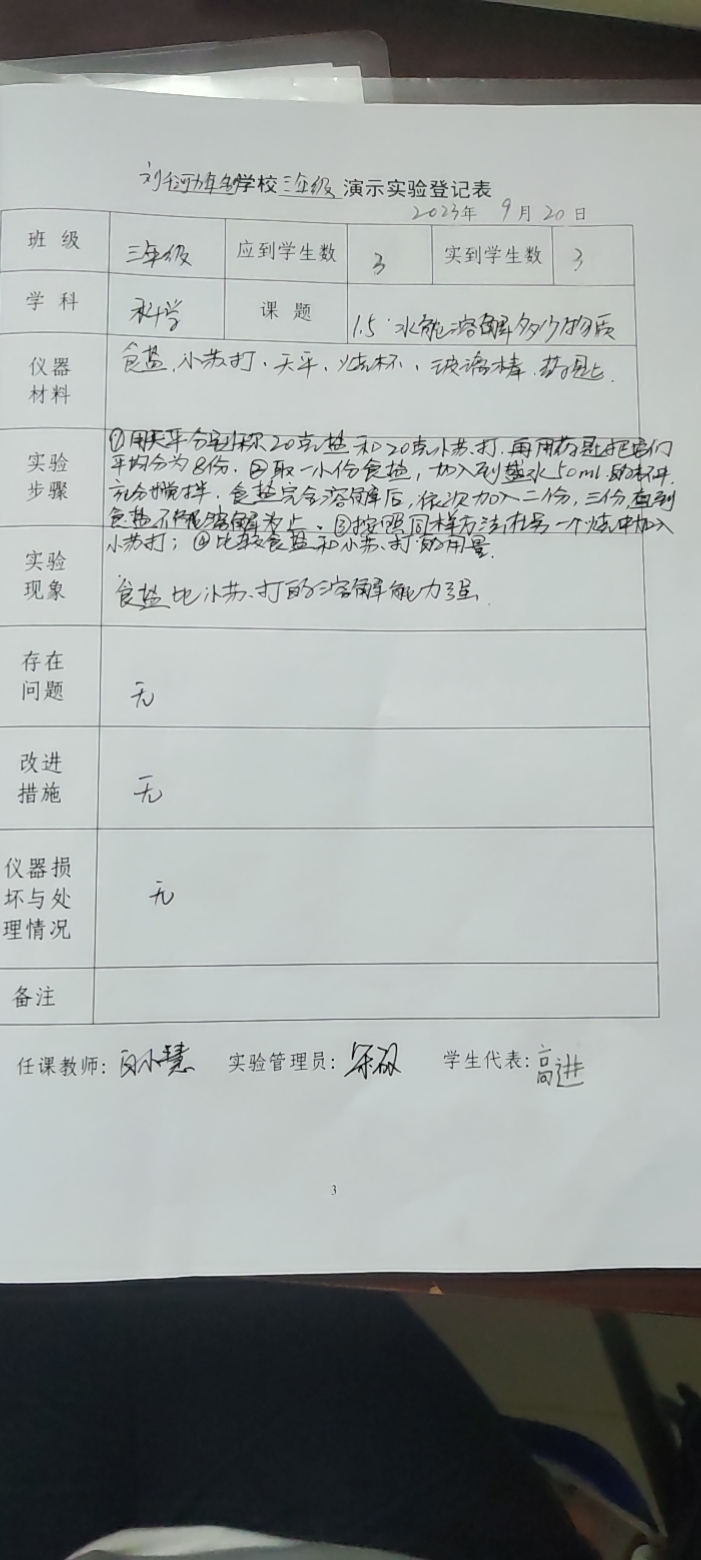 学校三年级演示实验登记表
2023年 9月 20日
班 级 三年级 应到学生数 3 实到学生数 3
学 科 科学 课 题 1.5 水能溶解多少物质
仪器 食盐、小苏打、天平、烧杯、玻璃棒、药匙
材料
①用天平分别称20克盐和20克小苏、打,再用药匙把它们
实验 平均分为8份.②取一小份食盐,加入到盛水50ml的杯中.
步骤 充分搅拌.食盐完全溶解后,依次加入二份,三份,直到
食盐不能溶解为止.③按照同样方法在另一个烧杯中加入
实验 小苏打;④比较食盐和小苏、打的用量.
现象 食盐比小苏、打的溶解能力强.
存在
问题 无
改进
措施 无
仪器损
坏与处 无
理情况
备注
任课教师: 白小慧 实验管理员: 学生代表:高进
3